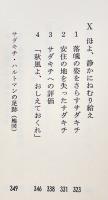 X 母よ、静かにねむり給え
1 落魂の姿をさらすサダキチ 323
2 安住の地を失ったサダキチ 331
3 サダキチへの評価 338
4 「秋風よ、おしえておくれ」 346
サダキチ・ハルトマンの足跡（略図） 349